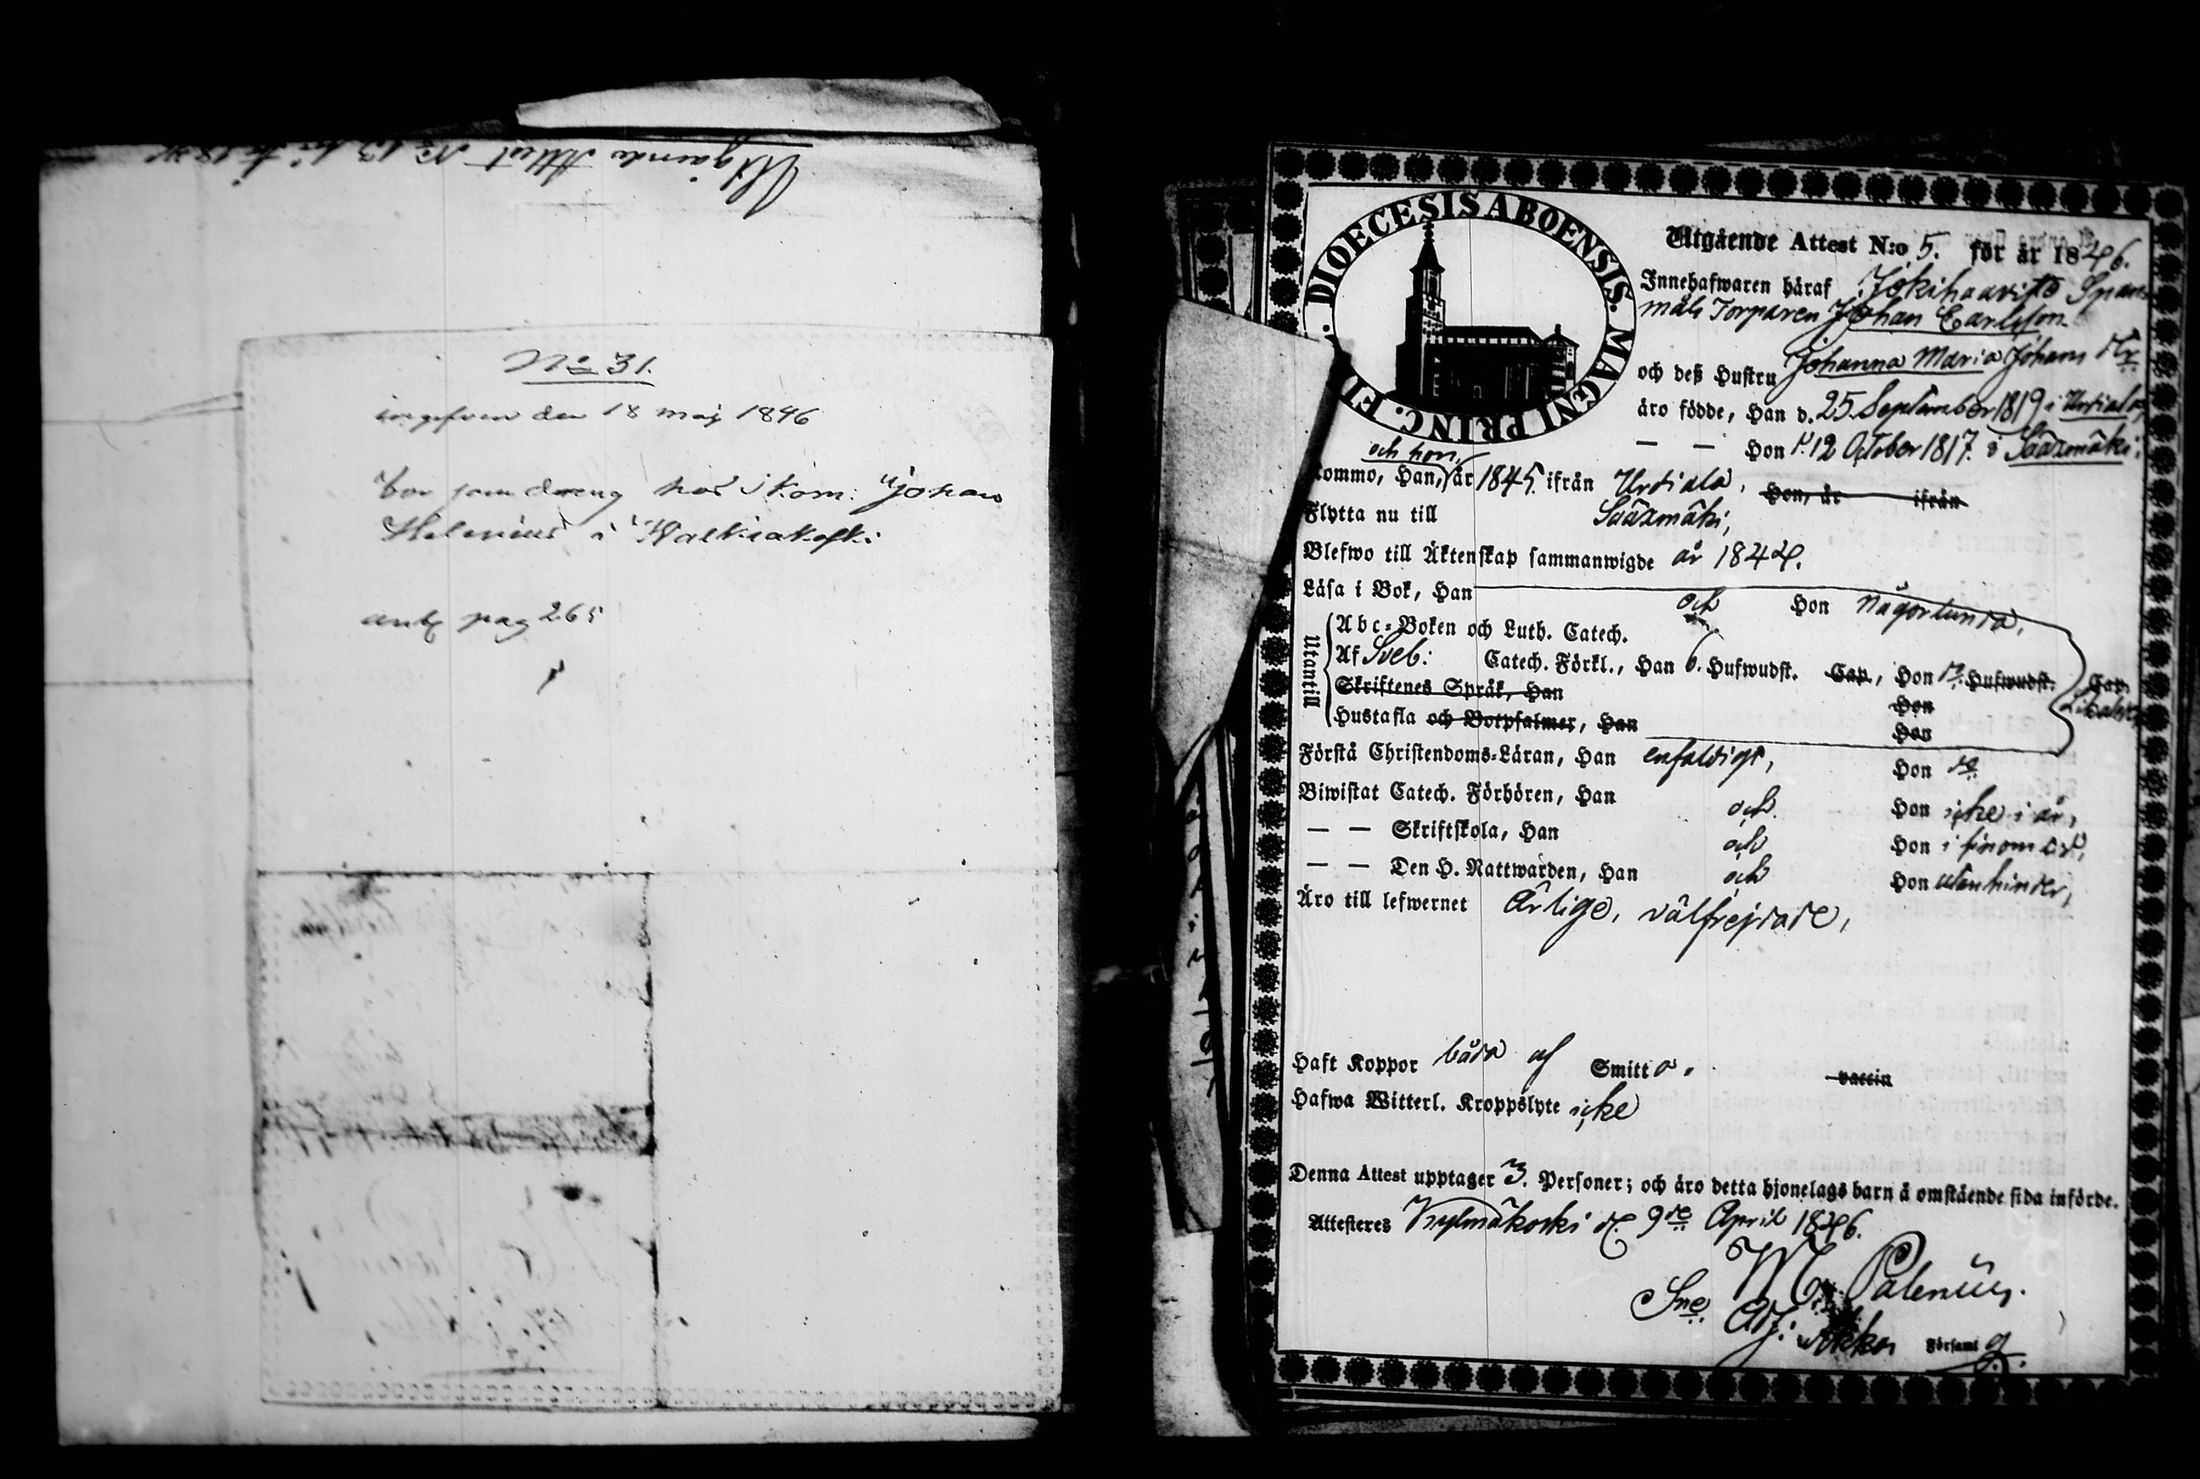 Utgående Attest No 13 för år 18
No 31.
ingifven den 18 maj 1846
bor som dreng hos Skom: Johan
Helenius i Walkiakoski
antg pag 265
DIOECESIS ABOENSIS. MAGNI PRINC. FI
Utgående Attest N:o 5. för år 1846.
Innehafwaren häraf Jokihaavisto Span-
måls Torparen Johan Carlsson
och deß Hustru Johanna Maria Johans dtr
äro födde, Han d. 25 September 1819 i Urdiala,
— — Hon d. 12 October 1817. i Sääxmäki;
och hon,
kommo, Han, år 1845. ifrån Urdiala, Hon, år ifrån
Flytta nu till Sääxmäki,
Blefwo till Äktenskap sammanwigde år 1844.
Läsa i Bok, Han och Hon någorlunda,
Utantill
Abc-Boken och Luth. Catech.
Af Sveb: Catech. Förkl., Han 6. Hufwudst. Cap., Hon Hufwudst. Cap.
Skriftenes Språk, Han Hon
Hustafla och Botpsalmer, Han Hon
Förstå Christendoms-Läran, Han enfaldigt, Hon do
Biwistat Catech. Förhören, Han och Hon icke i år,
— — Skriftskola, Han och Hon i sinom tid,
— — Den H. Nattwarden, Han och Hon utan hinder,
Äro till lefwernet Ärlige, välfrejdade,
Haft Koppor båda af Smitta, vaccin
Hafwa Witterl. Kroppslyte icke
Denna Attest upptager 3. Personer; och äro detta hjonelags barn å omstående sida införde.
Attesteres Kylmäkoski d. 9de April 1846.
M. Palenius.
Sne Adj: i Akkas Församlg.